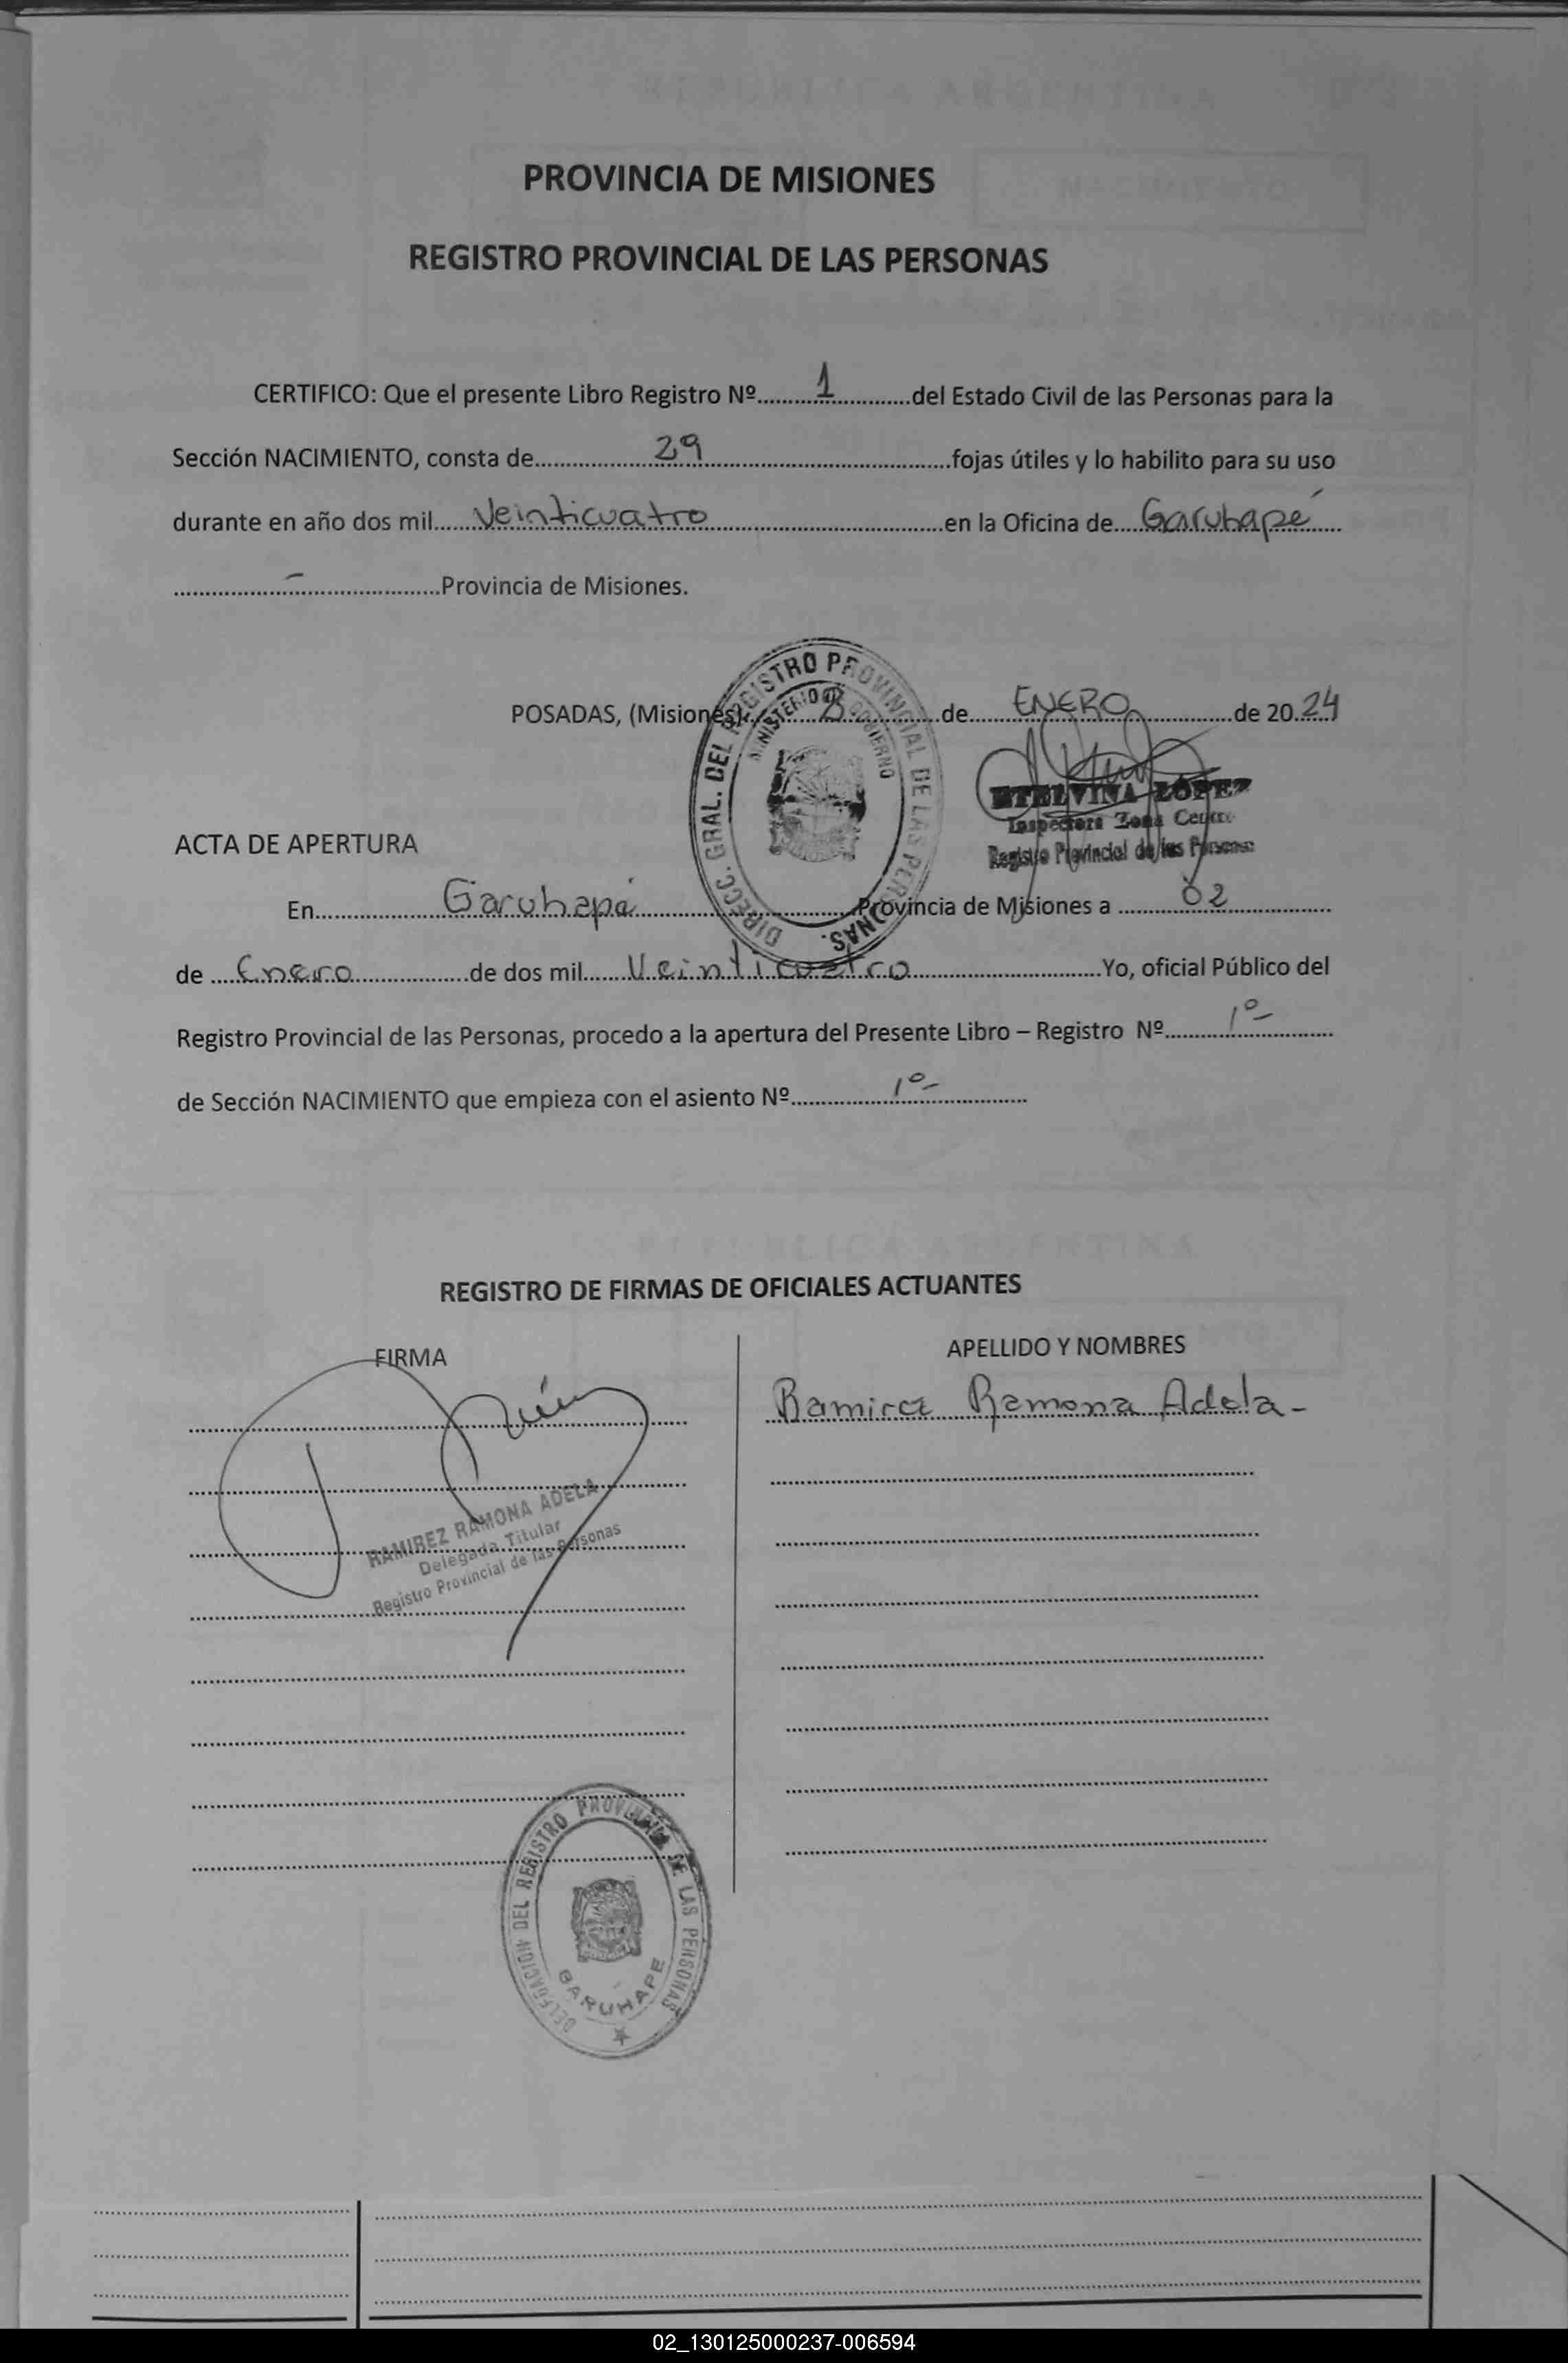 PROVINCIA DE MISIONES
REGISTRO PROVINCIAL DE LAS PERSONAS
CERTIFICO: Que el presente Libro Registro Nº 1 del Estado Civil de las Personas para la
Sección NACIMIENTO, consta de 29 fojas útiles y lo habilito para su uso
durante en año dos mil Veinticuatro en la Oficina de Garuhapé
- Provincia de Misiones.
POSADAS, (Misiones) de ENERO de 2024
DIRECC. GRAL. DEL REGISTRO PROVINCIAL DE LAS PERSONAS.
MINISTERIO DE GOBIERNO
ETELVINA LÓPEZ
Inspectora Zona Centro
Registro Provincial de las Personas
ACTA DE APERTURA
En Garuhapé Provincia de Misiones a 02
de Enero de dos mil Veinticuatro Yo, oficial Público del
Registro Provincial de las Personas, procedo a la apertura del Presente Libro – Registro Nº 1º-
de Sección NACIMIENTO que empieza con el asiento Nº 1º-
REGISTRO DE FIRMAS DE OFICIALES ACTUANTES
FIRMA
APELLIDO Y NOMBRES
Ramirez Ramona Adela-
RAMIREZ RAMONA ADELA
Delegada Titular
Registro Provincial de las Personas
DELEGACION DEL REGISTRO PROVINCIAL DE LAS PERSONAS
GARUHAPE
02_130125000237-006594